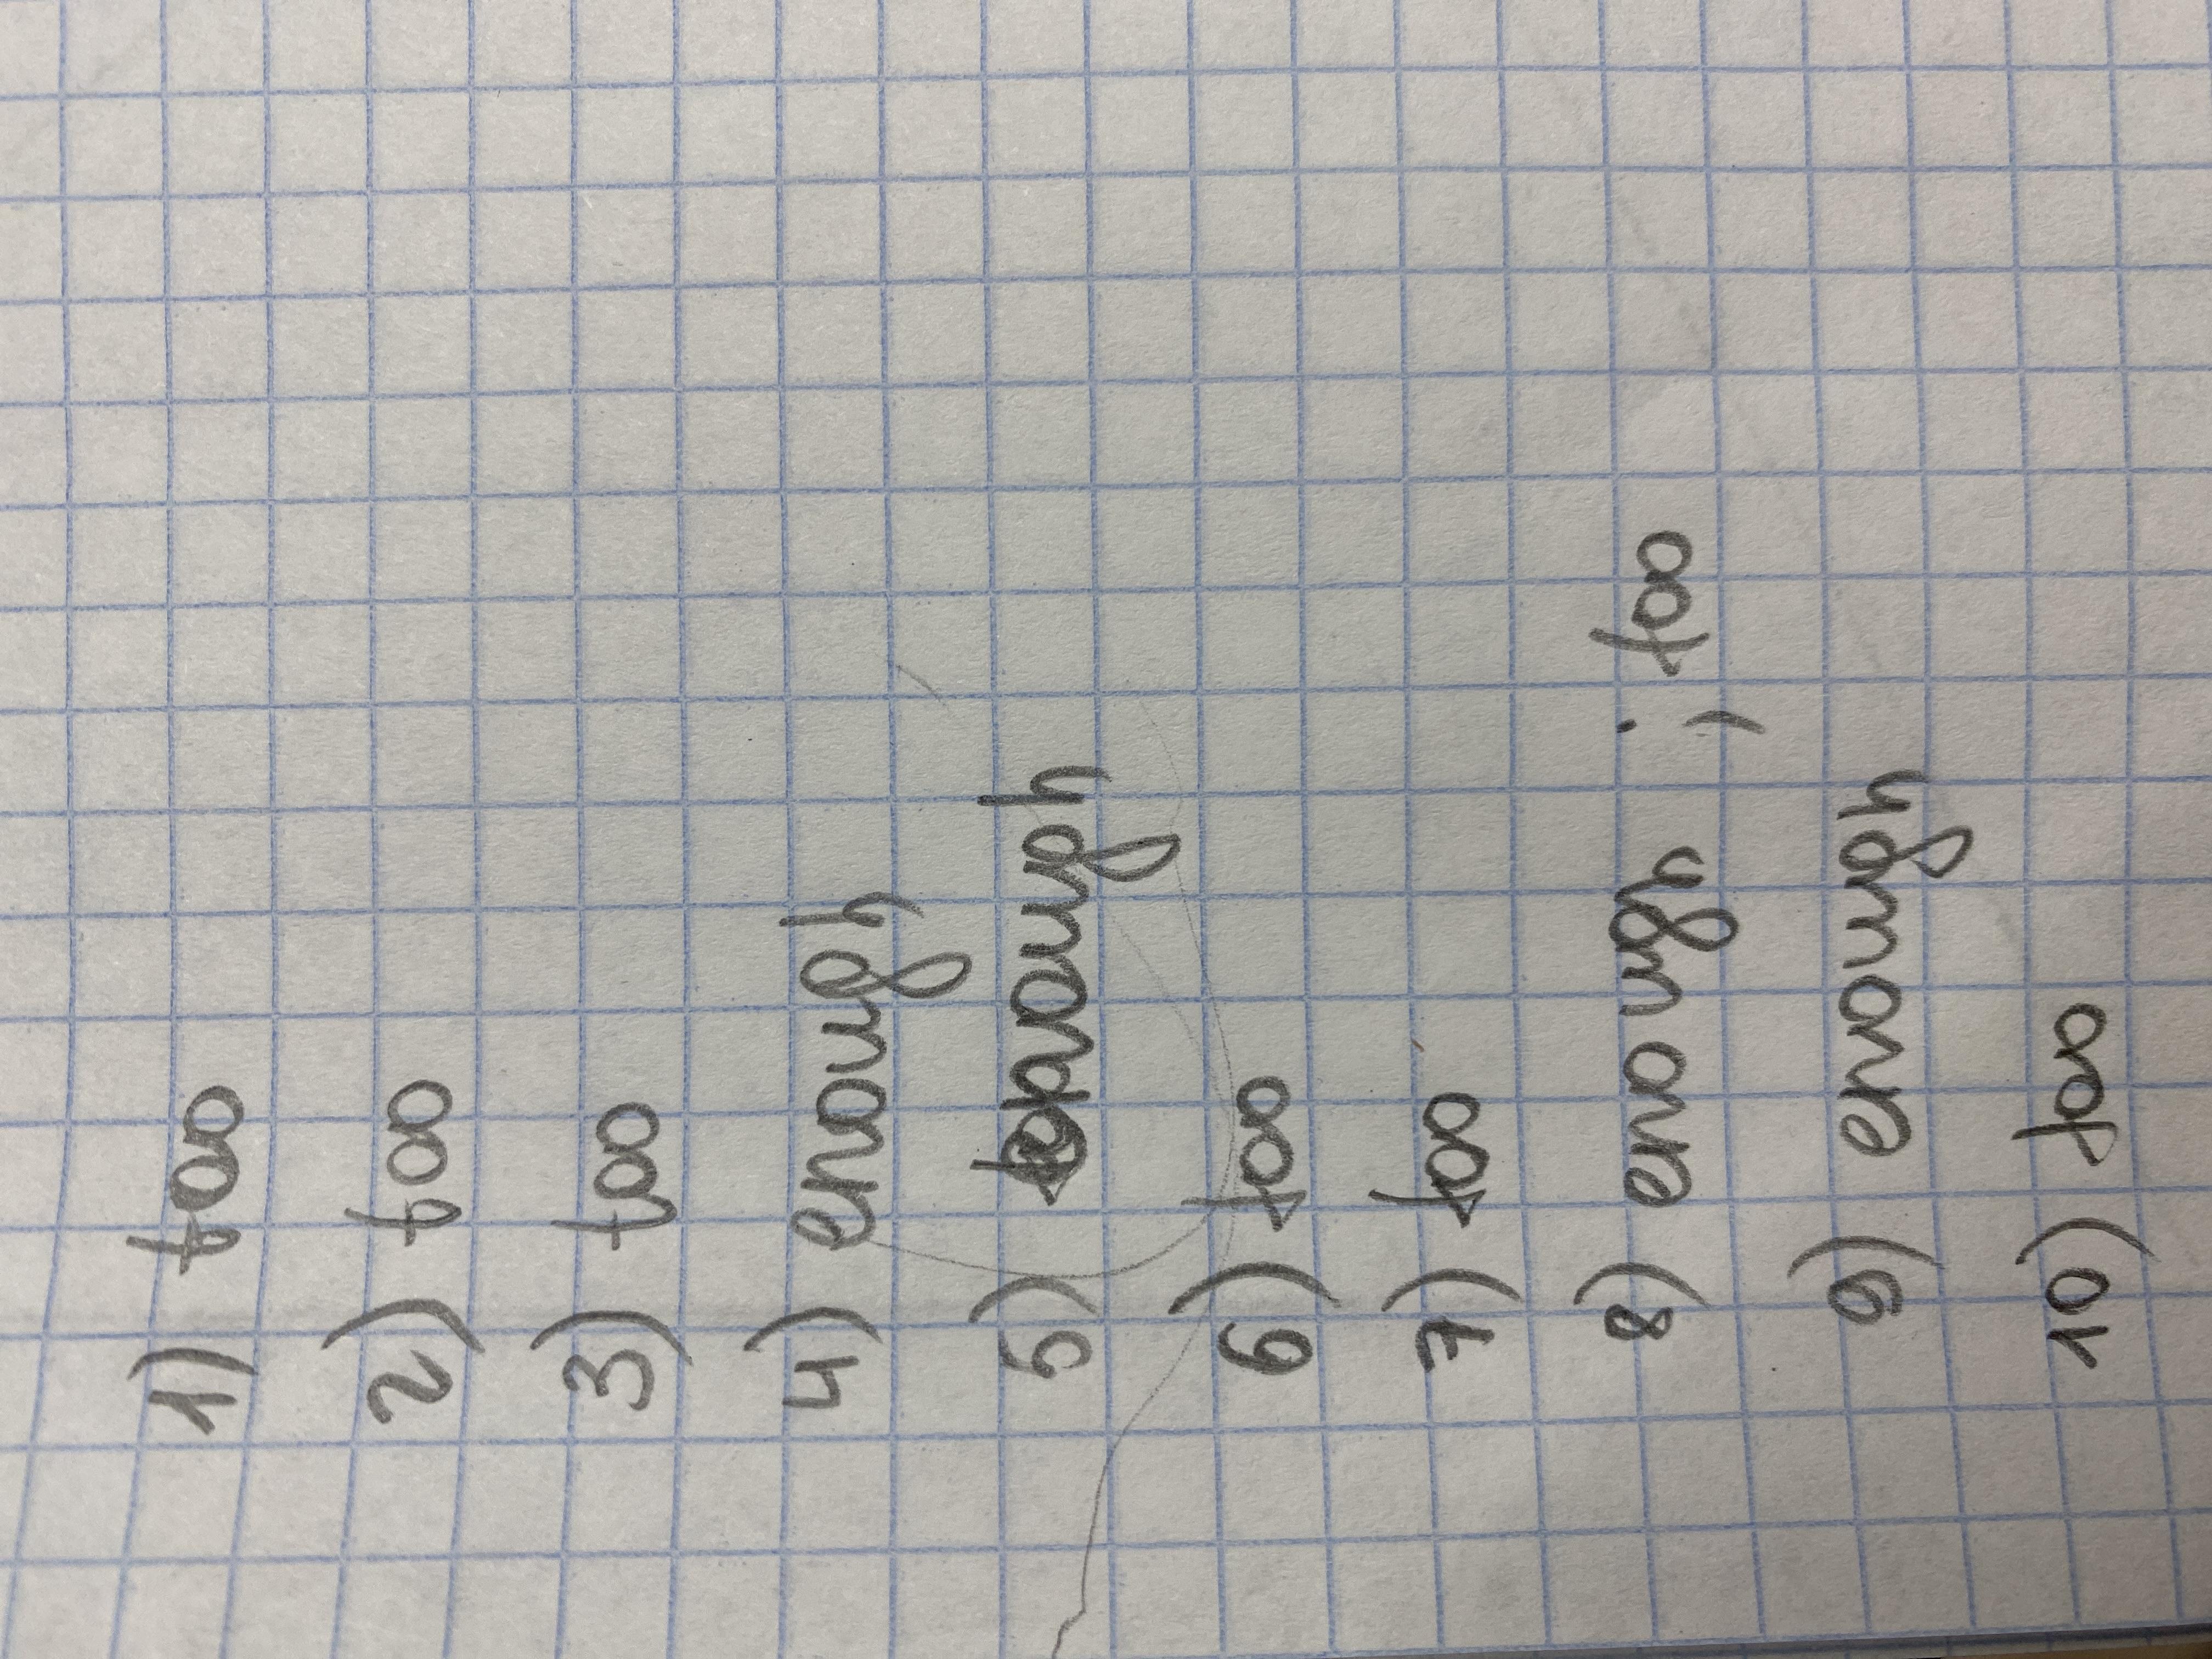 1) too
2) too
3) too
4) enough
5) enough
6) too
7) too
8) enough ; too
9) enough
10) too